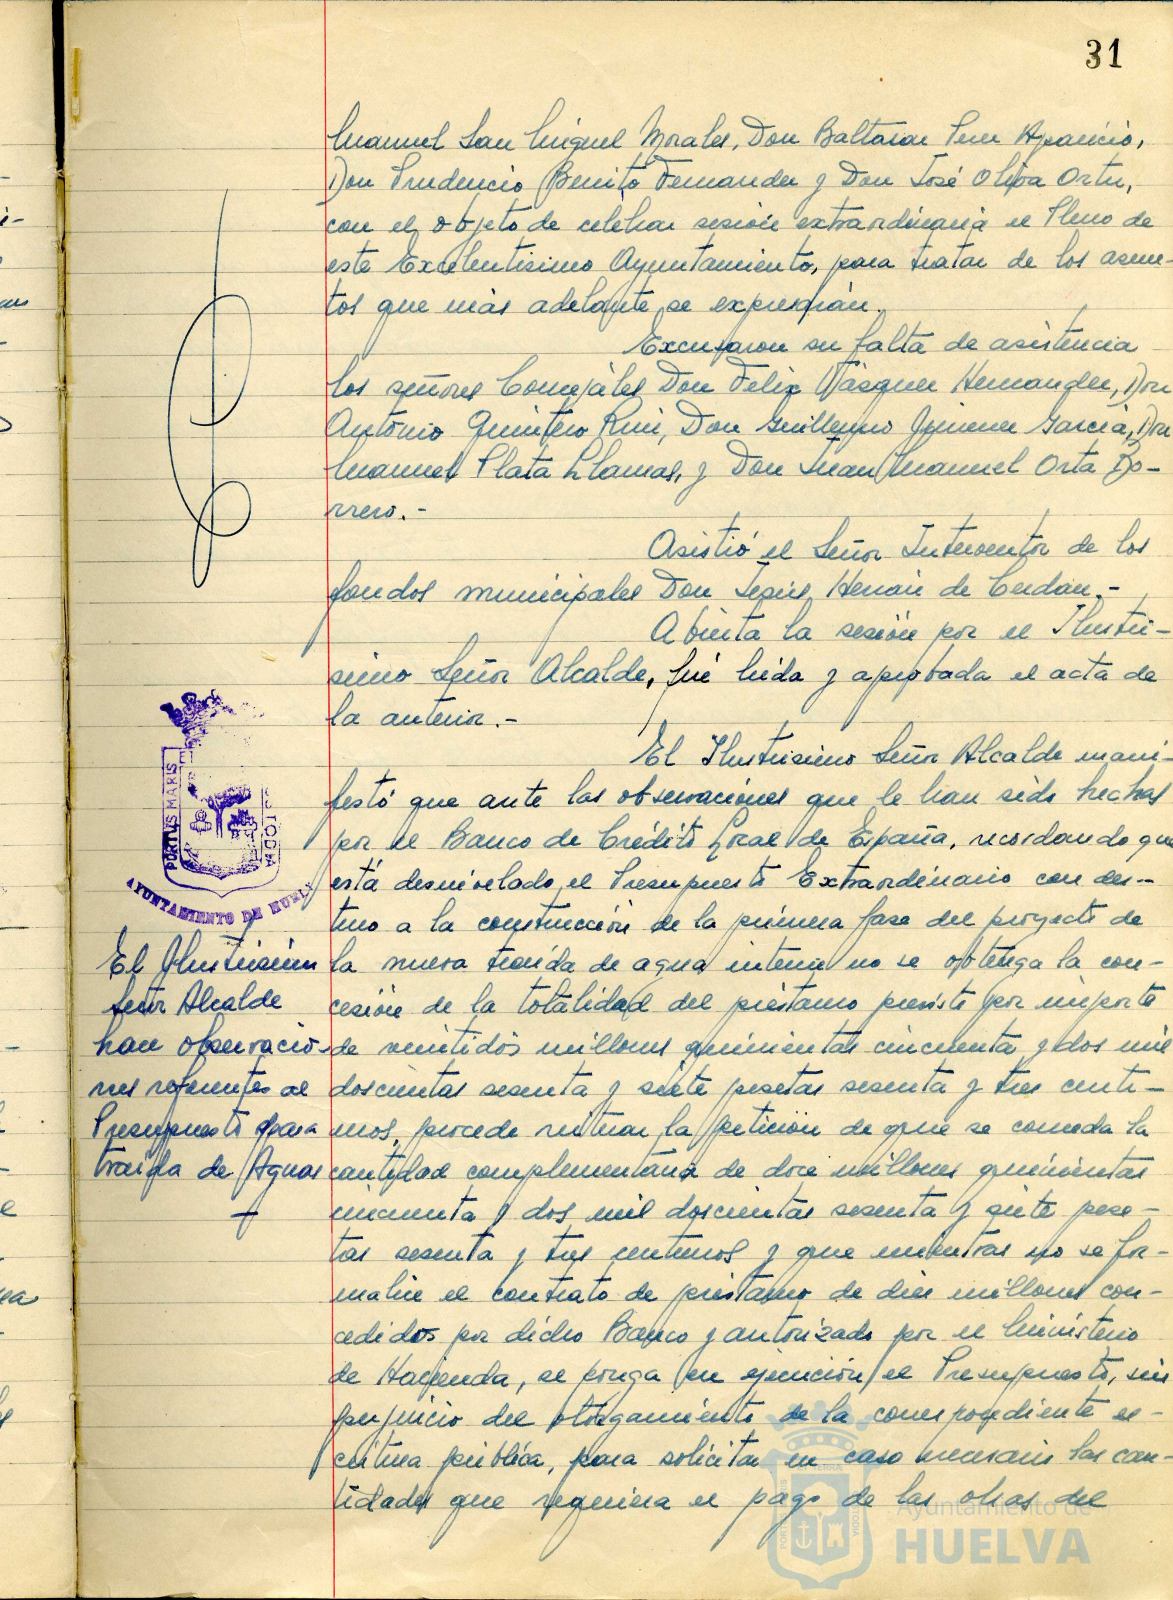 31
Manuel San Miguel Morales, Don Baltasar Perez Aparicio,
Don Prudencio Benito Fernandez y Don José Oliva Ortiz,
con el objeto de celebrar sesión extraordinaria el Pleno de
este Excelentisimo Ayuntamiento, para tratar de los asun-
tos que más adelante se expresarán.
Excusaron su falta de asistencia
los señores Concejales Don Felix Vásquez Hernandez, Don
Antonio Quintero Ruiz, Don Guillermo Jimenez García, Don
Manuel Plata Llamas, y Don Juan Manuel Orta Bo-
rrero.-
Asistió el Señor Interventor de los
fondos municipales Don Jesús Hernán de Cerdán.-
Abierta la sesión por el Ilustri-
simo Señor Alcalde, fué leida y aprobada el acta de
la anterior.-
El Ilustrisimo Señor Alcalde mani-
festó que ante las observaciones que le han sido hechas
por el Banco de Crédito Local de España, recordando que
está desnivelado el Presupuesto Extraordinario con des-
tino a la construcción de la primera fase del proyecto de
la nueva traida de agua interin no se obtenga la con-
cesión de la totalidad del préstamo previsto por importe
de veintidós millones quinientas cincuenta y dos mil
doscientas sesenta y siete pesetas sesenta y tres centi-
mos, procede reiterar la petición de que se conceda la
cantidad complementaria de doce millones quinientas
cincuenta y dos mil doscientas sesenta y siete pese-
tas sesenta y tres centimos y que mientras no se for-
malice el contrato de préstamo de diez millones con-
cedidos por dicho Banco y autorizado por el Ministerio
de Hacienda, se ponga en ejecución el Presupuesto, sin
perjuicio del otorgamiento de la correspondiente es-
critura pública, para solicitar en caso necesario las can-
tidades que requiera el pago de las obras del
PORTUS MARIS
CUSTODIA
AYUNTAMIENTO DE HUELVA
El Ilustrisimo
Señor Alcalde
han observacio-
nes referentes al
Presupuesto para
traida de Aguas
Ayuntamiento de
HUELVA